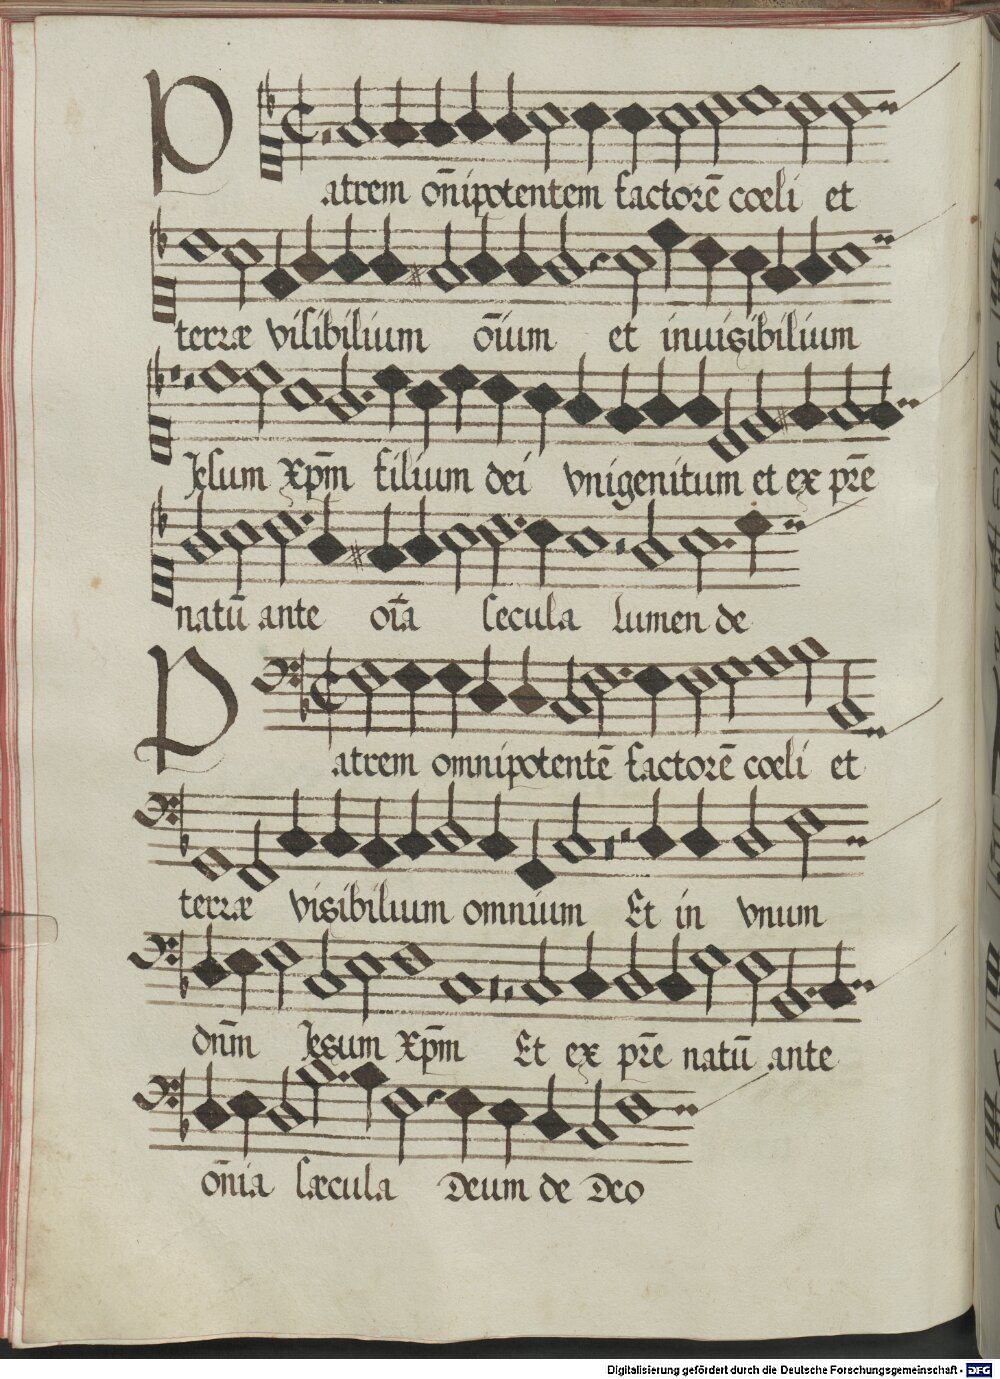 Patrem om̄ipotentem factorē cœli et
terræ visibilium ōium et inuisibilium
Jesum Xp̄m filium dei vnigenitum et ex pr̄e
natū ante oīa secula Lumen de
Patrem omnipotentē factorē cœli et
terræ visibilium omnium Et in vnum
dn̄m Jesum Xp̄m Et ex pr̄e natū ante
om̄ia sæcula Deum de Deo
Digitalisierung gefördert durch die Deutsche Forschungsgemeinschaft - DFG